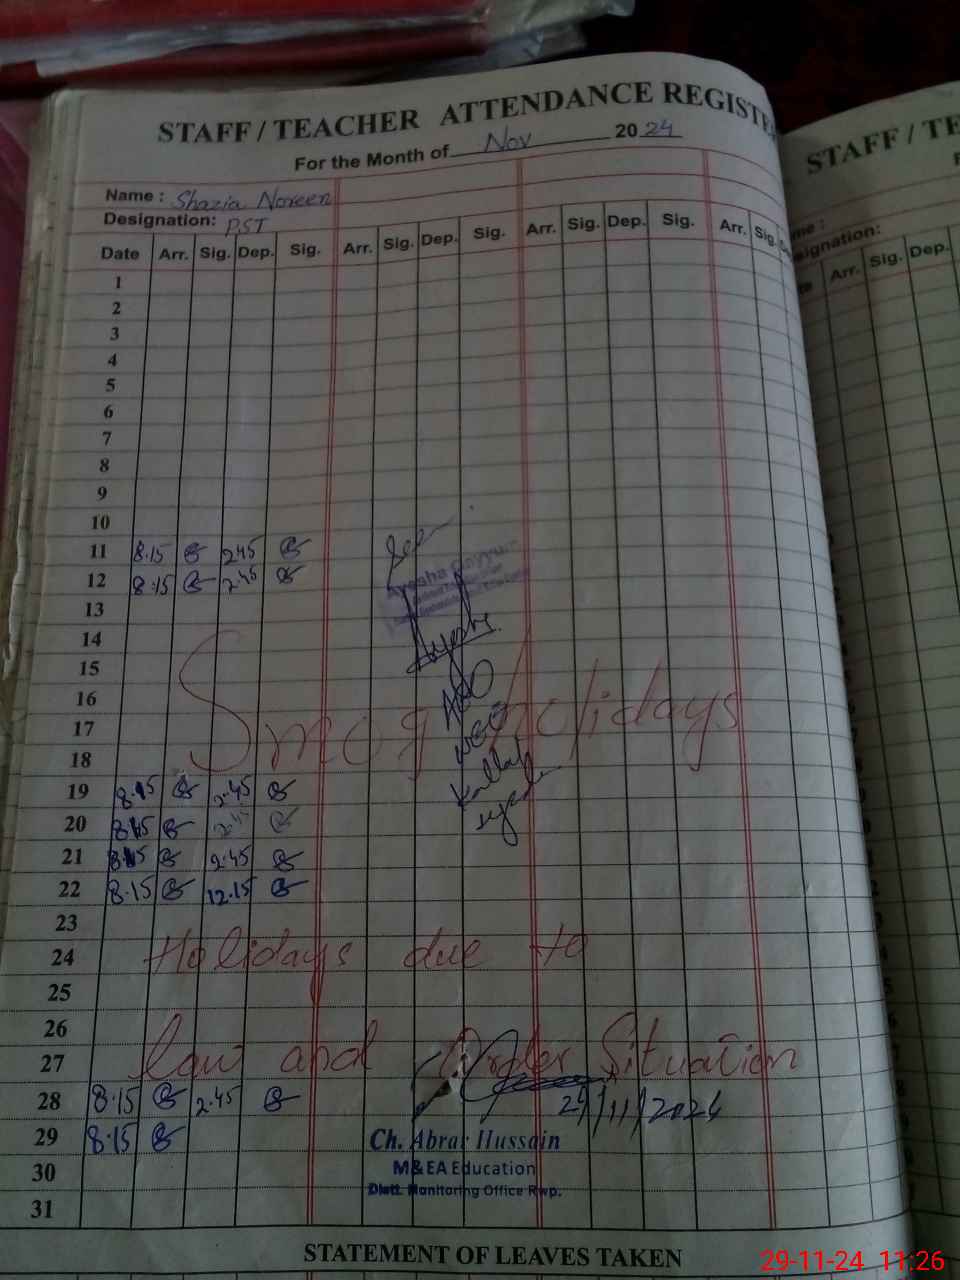 STAFF / TEACHER ATTENDANCE REGISTE
For the Month of Nov 2024
Name : Shazia Noreen
Designation: PST
Date Arr. Sig. Dep. Sig. Arr. Sig. Dep. Sig. Arr. Sig. Dep. Sig. Arr. Sig.
1
2
3
4
5
6
7
8
9
10
11 8.15 2.45
12 8.15 2.45
13
14
15
16
17
18
Smog holidays
19 8.15 2.45
20 8.15 2.45
21 8.15 2.45
22 8.15 12.15
23
24 Holidays due to
25
26
27 law and Order Situation
28 8.15 2.45 29/11/2024
29 8.15
Ch. Abrar Hussain
30 M&EA Education
Distt. Monitoring Office Rwp.
31
STATEMENT OF LEAVES TAKEN
STAFF / TE
me :
signation:
Arr. Sig. Dep.
29-11-24 11:26